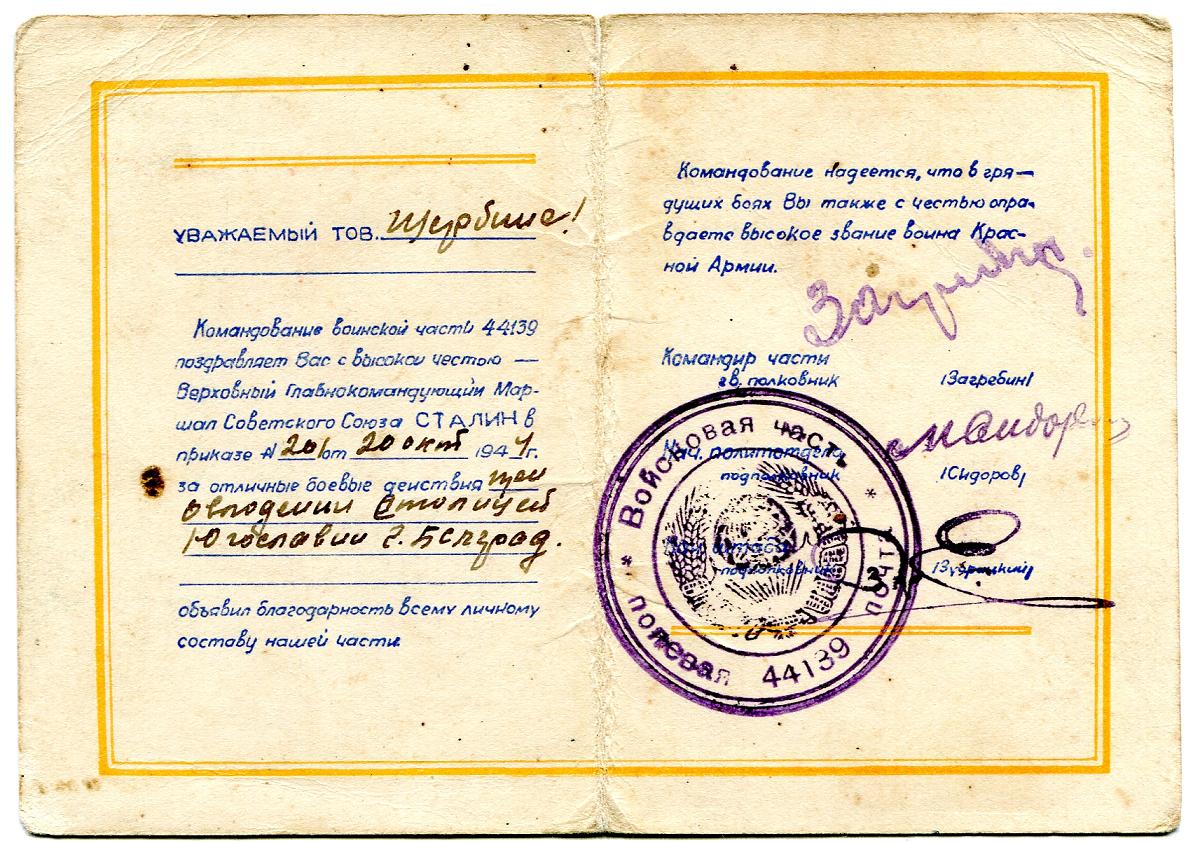 УВАЖАЕМЫЙ ТОВ. Щербина!
Командование воинской части 44139
поздравляет Вас с высокой честью —
Верховный Главнокомандующий Мар-
шал Советского Союза СТАЛИН в
приказе № 201 от 20 окт 1944 г.
за отличные боевые действия при
овладении столицей
Югославии г. Белград.
объявил благодарность всему личному
составу нашей части.
Командование надеется, что в гря—
дущих боях Вы также с честью опра-
вдаете высокое звание воина Крас-
ной Армии.
Командир части
гв. полковник /Загребин/
Нач. политотдела
подполковник /Сидоров/
Нач. штаба
подполковник
Войсковая часть
* полевая почта *
44139